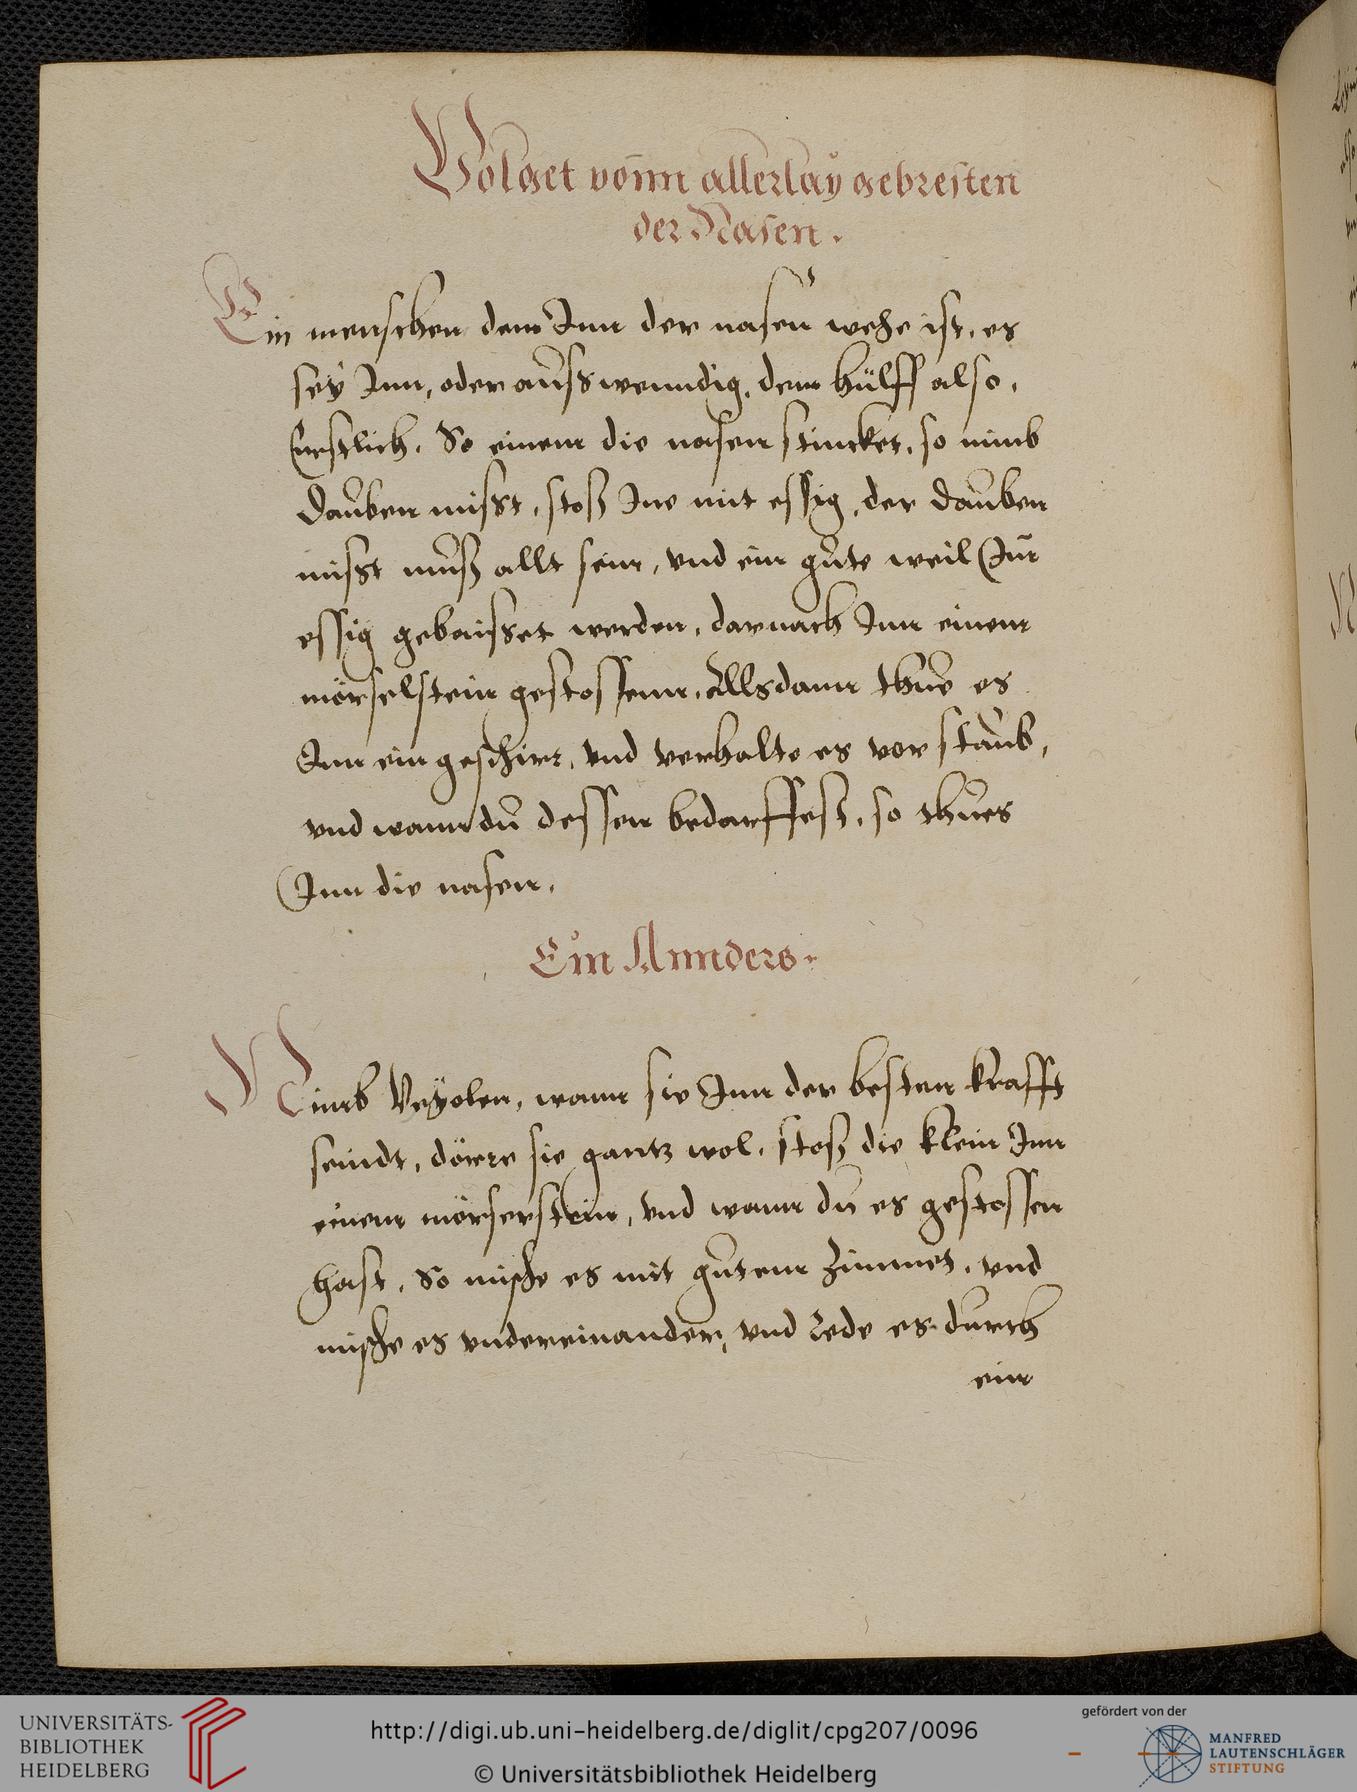 Volget vonn allerlaÿ gebresten
der Nasen.
Ein menschen dem Inn der nasen wehe ist, es
seÿ Inn, oder außwenndig, dem hülff also,
Erstlich. So einem die nasen stincket, so nimb
dauben misst, stoß Ine mit essig, der dauben
misst muß allt sein, vnd ein gute weil Inn
essig gebaisset werden, darnach Inn einem
mörselstein gestossenn, Allsdann thue es
Inn ein geschirr, vnd verhalte es vor staub,
vnd wann du dessen bedarffest, so thues
Inn die nasen.
Ein Annders.
Nimb Veÿolen, wann sie Inn der besten krafft
seindt, dörre sie gantz wol, stoß die klein Inn
einem mörserstein, vnd wann du es gestossen
hast, So mische es mit gutem Zimmet, vnd
mische es vndereinander, vnd rede es durch
ein
UNIVERSITÄTS-
BIBLIOTHEK
HEIDELBERG
http://digi.ub.uni-heidelberg.de/diglit/cpg207/0096
© Universitätsbibliothek Heidelberg
gefördert von der
MANFRED
LAUTENSCHLÄGER
STIFTUNG